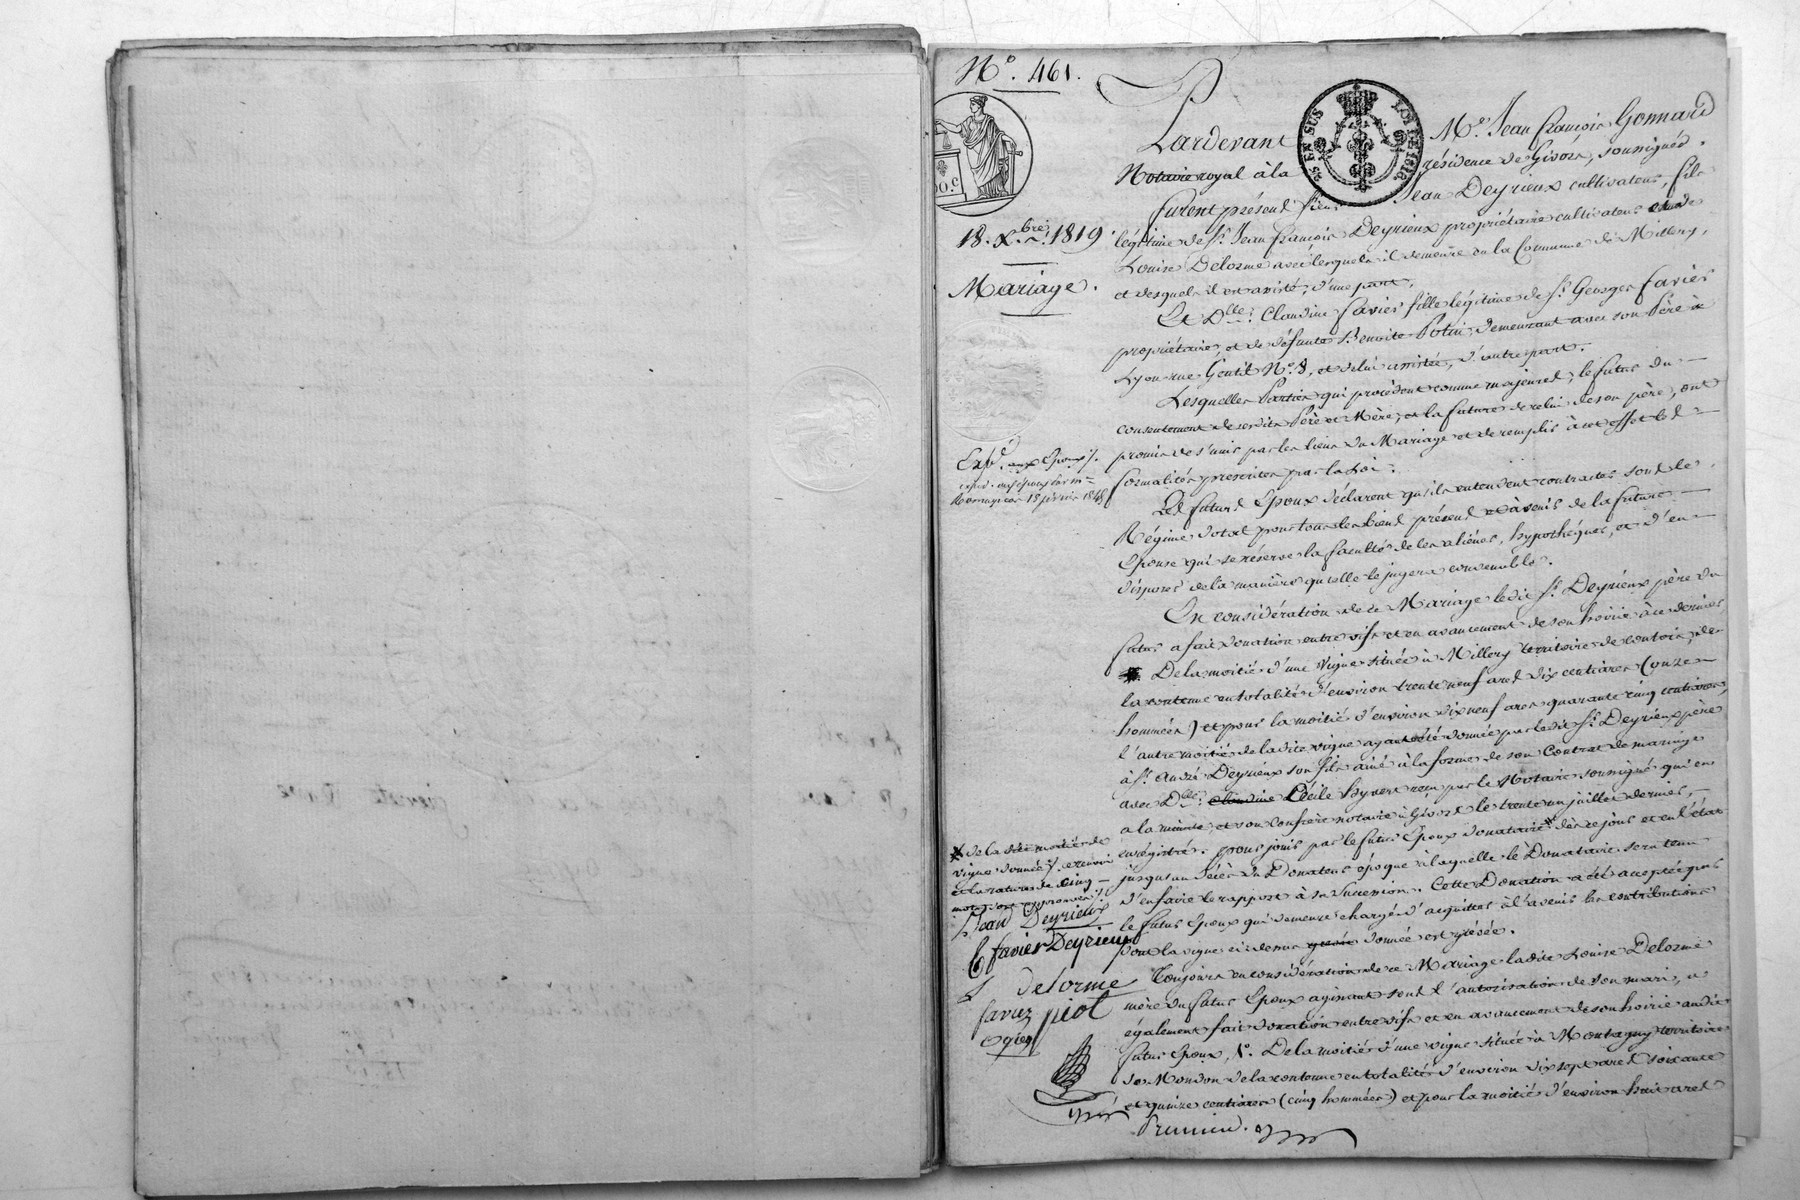 N.º 461.
Pardevant Me Jean François Gonnard
Notaire royal à la résidence de Givors, soussigné.
25 EN SUS
LOI DE 1816
00. C
18. Xbre 1819.
Mariage.
Furent présents Sieur Jean Deyrieux cultivateur, fils
légitime de Sr. Jean François Deyrieux propriétaire cultivateur et de
Louise Delorme avec lesquels il demeure en la Commune de Millery,
et desquels il est assisté, d'une part,
Et Dlle. Claudine Favier fille légitime de Sr. Georges Favier
propriétaire, et de défunte Benoite Potin, demeurant avec son Père à
Lyon rue Gentil N.º 8, et de lui assistée, d'autre part.
Lesquelles Parties qui procèdent comme majeures, le futur du
consentement de ses dits Père et Mère, et la future de celui de son père, ont
promis de s'unir par les liens du Mariage et de remplir à cet effet les
formalités prescrites par la Loi.
Expé. aux Epoux
15 février 1848
Les futurs Epoux déclarent qu'ils entendent contracter sous le
Régime dotal pour tous les biens présents et à venir de la future
Epouse qui se réserve la faculté de les aliéner, hypothéquer, et d'en
disposer de la manière qu'elle le jugera convenable.
En considération de ce Mariage ledit Sr. Deyrieux père du
futur a fait donation entre vifs et en avancement de son hoirie à ce dernier
De la moitié d'une vigne située à Millery territoire de , de
la contenue en totalité d'environ trente neuf ares dix centiares (onze
hommées) et pour la moitié d'environ dix neuf ares quarante cinq centiares,
l'autre moitié de la dite vigne ayant été donnée par ledit Sr. Deyrieux père
à Sr. André Deyrieux son fils ainé à la forme de son Contrat de mariage
avec Dlle. Claudine Cécile reçu par le Notaire soussigné qui en
a la minute, et son confrère notaire à Givors le trente un juillet dernier,
enregistré. pour jouir par le futur Epoux donataire * dès ce jour et en l'état
jusqu'au décès du Donateur époque à laquelle le Donataire sera tenu
d'en faire le rapport à sa Succession. Cette Donation a été acceptée par
le futur Epoux qui demeure chargé d'acquitter à l'avenir les contributions
dont la vigne ci-dessus donnée est grévée.
* de la dite moitié de
vigne donnée renvoi
et la rature de cinq
mots approuvés
Jean Deyrieux
C favier Deyrieux
L delorme
favier piot
ogier
Toujours en considération de ce Mariage la dite Louise Delorme
mère du futur Epoux agissant sous l'autorisation de son mari, a
également fait donation entre vifs et en avancement de son hoirie audit
futur Epoux, 1º. De la moitié d'une vigne située à Montagny territoire
de Moudon de la contenue en totalité d'environ dix sept ares soixante
et quinze centiares (cinq hommées) et pour la moitié d'environ huit ares